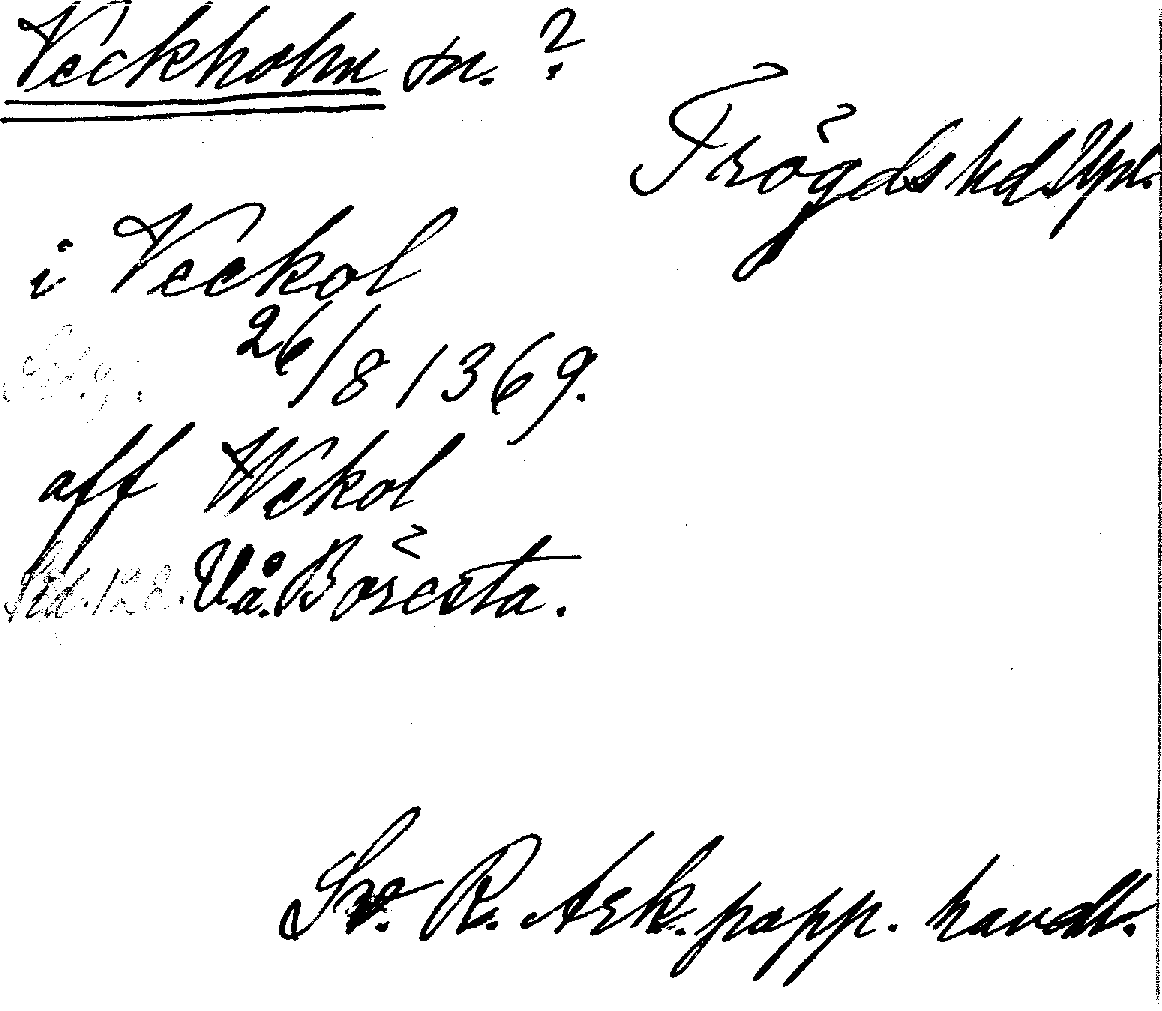 Veckholm sn. ?
Trögds hd Upl.
i Veckol
26/8 1369.
aff Wekol
Sid. 128. V.å. Böresta.
Sv. R. Ark. papp. handl.